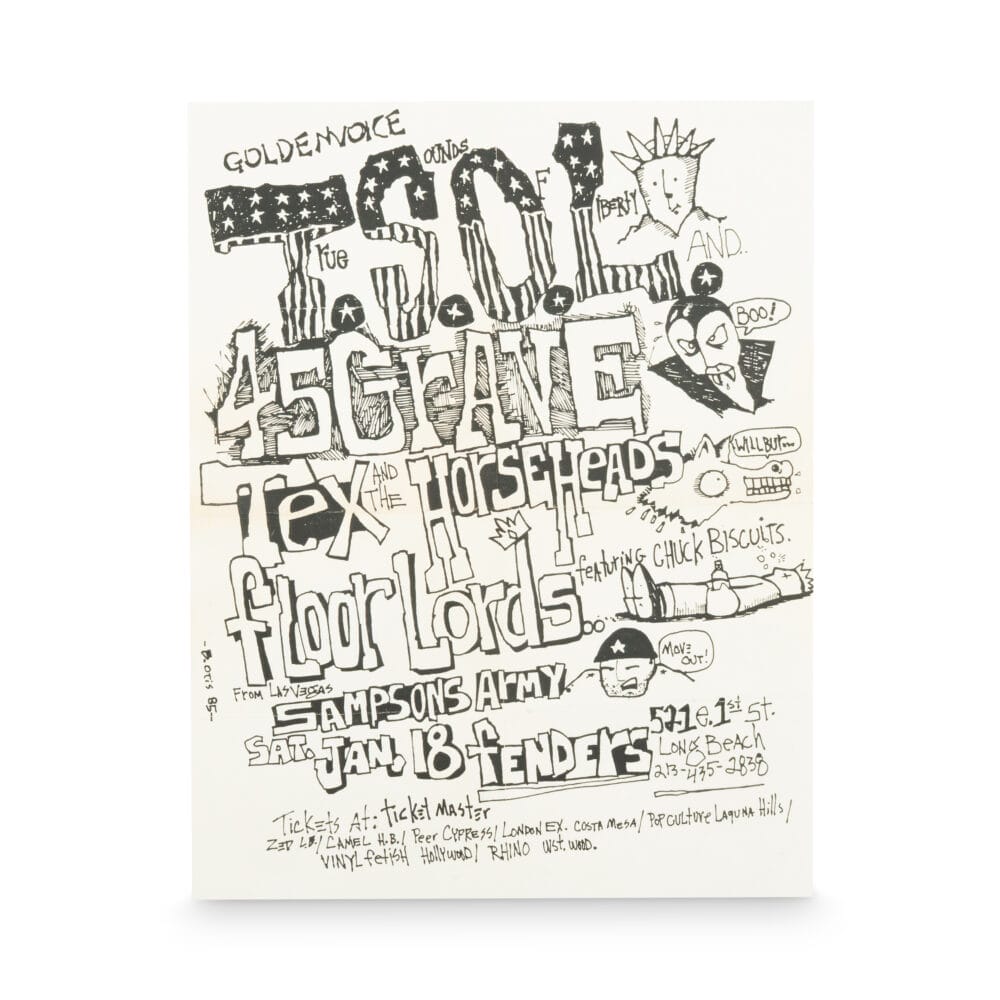 GOLDENVOICE
T.S.O.L.
True Sounds of Liberty
AND..
45 GrAVE
BOO!
Tex AND THE HORSEHEADS
WILL BUT...
floor Lords...
featuring CHUCK BISCUITS.
From Las Vegas
SAMPSONS ARMY
MOVE OUT!
SAT. JAN. 18 fENDERS
521 e. 1st St.
Long Beach
213-435-2838
Tickets At: ticket MASTER
ZED L.B./ CAMEL H.B./ Peer CYPRESS/ LONDON EX. COSTA MESA/ POP CULTURE LAGUNA HILLS/
VINYL fetish HOLLYWOOD/ RHINO WST. WOOD.
OTIS 85-